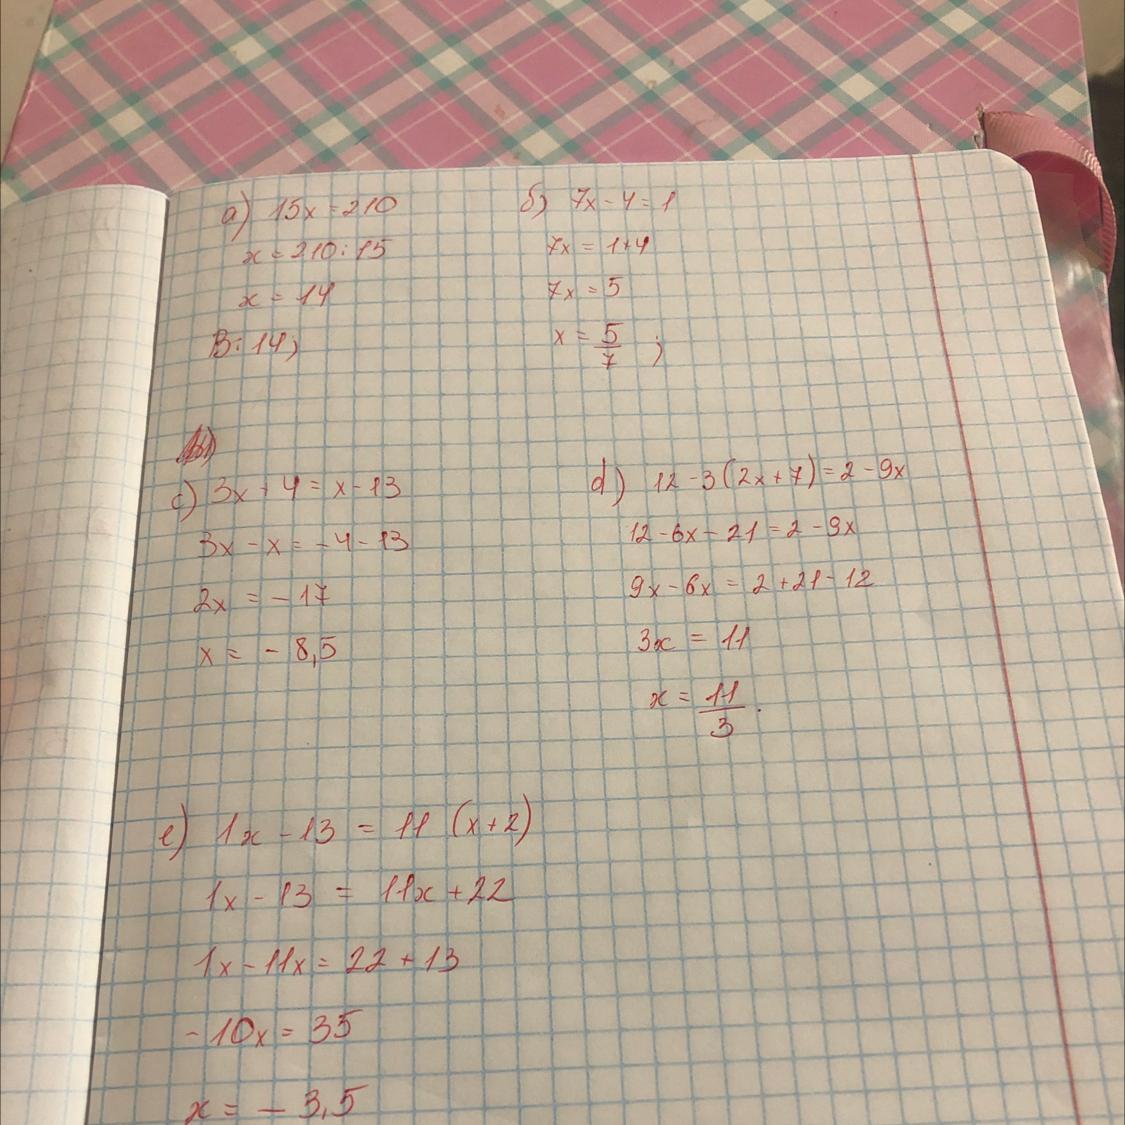 а) 15x = 210
x = 210 : 15
x = 14
В: 14;
б) 7x - 4 = 1
7x = 1+4
7x = 5
x = 5/7 ;
c) 3x + 4 = x - 13
3x - x = -4 - 13
2x = -17
x = - 8,5
d) 12 - 3(2x + 7) = 2 - 9x
12 - 6x - 21 = 2 - 9x
9x - 6x = 2 + 21 - 12
3x = 11
x = 11/3.
e) 1x - 13 = 11 (x+2)
1x - 13 = 11x + 22
1x - 11x = 22 + 13
-10x = 35
x = - 3,5